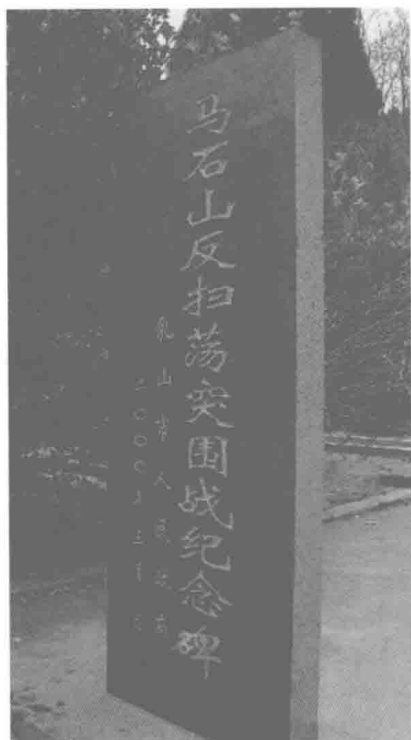 马石山反扫荡突围战纪念碑
乳山市人民政府
二〇〇〇年三月